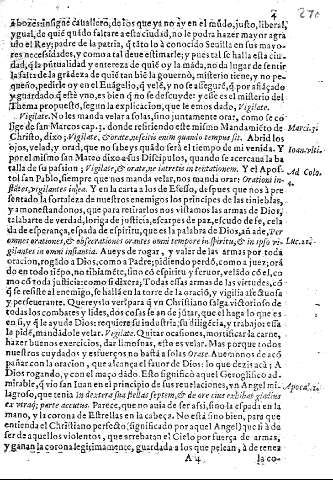 2 270
a bozes: insigne cauallero, de los que ya no ay en el mũdo, justo, liberal,
y gual, de quiẽ quãdo faltare a esta ciudad, no le podra hazer mayor agra
uio el Rey: padre de la patria, q̃ tãto lo à conocido Seuilla en sus mayo
res necessidades, y como a tal deue estimarle; y pues tal se halla esta ciu
dad, q̃ la pũtualidad y entereza de quiẽ oy la mãda, no da lugar de sentir
la falta de la grãdeza de quiẽ tan biẽ la gouernò, misterio tiene, y no pe
queño, pedirle oy en el Euãgelio, q̃ vele, y no se assegure, q̃ por afiaçado
y guardado q̃ estè vno, es biẽ q̃ no se descuyde: y esse es el misterio del
Thema propuesto, segun la explicacion, que le emos dado, Vigilate.
Vigilate. No les manda velar a solas, sino juntamente orar, como se co
lige de san Marcos cap. 3. donde refiriendo este mismo Mandamiẽto de Marci. 3.
Christo, dixo; Vigilate, & orate, nescitis enim quando tempus sit. Abrid los
ojos, velad, y orad, que no sabeys quãdo serà el tiempo de mi venida. Y
por el mismo san Mateo dixo a sus Discipulos, quando se acercaua la ba
talla de su passion; Vigilate, & orate, ne intretis in tentationem. Y el Apos-
tol san Pablo, siempre que nos manda velar, nos manda orar: Orationi in- Ad Colo.
stãtes, vigilantes in ea. Y en la carta a los de Efeso, despues que nos à pre 4.
sentado la fortaleza de nuestros enemigos los principes de las tinieblas,
y amonestandonos, que para retirarlos nos vistamos las armas de Dios,
talabarte de verdad, loriga de justicia, escarpes de paz, escudo de fe, cela
da de esperança, espada de espiritu, que es la palabra de Dios, añade, Per
omnes orationes, & obsecrationes orantes omni tempore in spiritu, & in ipso vi- Luc. 21.
gilantes in omni instantia. Aueys de rogar, y valer de las armas por toda
oracion, rogado a Dios, como a Padre; pidiendo perdõ, como a juez; orã
do en todo tiẽpo, no tibiamẽte, sino cõ espiritu y feruor, velãdo cõ el, co
mo cõ toda justicia: como si dixera; Todas essas armas de las virtudes, cõ
q̃ se resiste al enemigo, se hallã en la torre de la oraciõ, y vigilia afectuosa
y perseuerante. Quereys lo ver? para q̃ vn Christiano salga victorioso de
todos los combates y lides, dos cosas se an de jũtar, que el haga lo que es
en si, y q̃ le ayude Dios: requiere su industria, su diligẽcia, y trabajo: essa
la pide, mandãdole velar. Vigilate. Quitar ocasiones, mortificar la carne,
hazer buenos exercicios, dar limosnas, esto es velar. Mas porque todos
nuestros cuydados y esfuerços no bastã a solas Orate. Auemonos de acõ
pañar con la oracion, que alcança el fauor de Dios: lo que dezis acà; A
Dios rogando, y con el maço dado. Esto significò aquel Geroglifico ad-
mirable, q̃ vio san Iuan en el principio de sus reuelaciones, vn Angel mi- Apocal. 1.
lagroso, que tenia In dextera sua stellas septem, & de ore eius exibat gladius
ex vtraq; parte accutus. Parece, que no auia de ser assi, sino la espada en la
mano, y la corona de Estrellas en la cabeça. No està sino bien, para que
entienda el Christiano perfecto (significado por aquel Angel) que si à de
ser de aquellos violentos, que arrebatan el Cielo por fuerça de armas,
y ganan la corona legitimamente, guardada a los que pelean, à de tenez
A 4 la co-